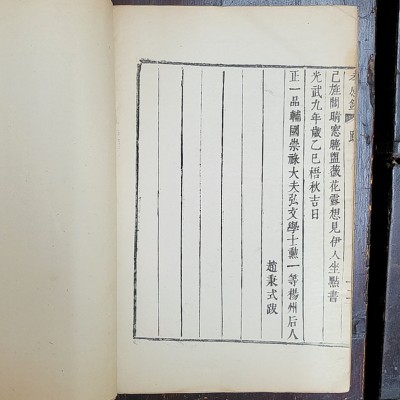 己旌閒晴窓晩盥薇花露想見伊人坐點書
光武九年歲乙巳梧秋吉日
正一品輔國崇祿大夫弘文學士勳一等楊州后人
趙秉式跋